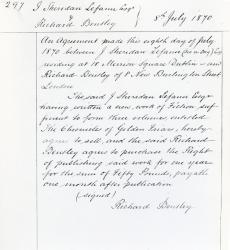 297
J Sheridan Lefanu Esqr
&
Richard Bentley
8th July 1870
An Agreement made this eighth day of July
1870 between J Sheridan Lefanu
residing at 18 Merrion Square Dublin and
Richard Bentley of 8 New Burlington Street
London
The said J Sheridan Lefanu Esqr
having written a new work of Fiction suf-
ficient to form three volumes, entitled
The Chronicles of Golden Friars, hereby
agrees to sell, and the said Richard
Bentley agrees to purchase the Right
of publishing said work for one year
for the sum of Fifty Pounds, payable
one month after publication
(signed)
Richard Bentley